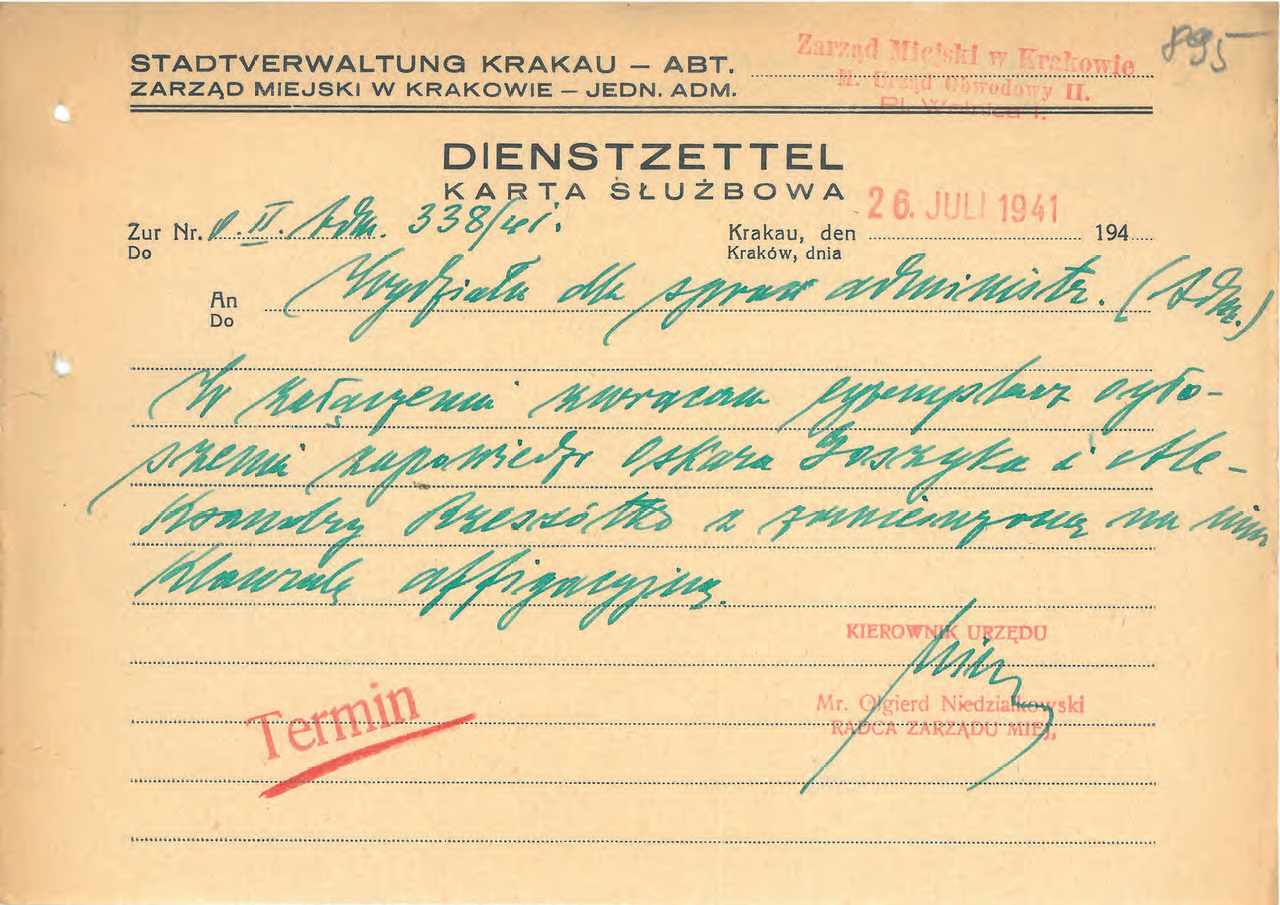 895
STADTVERWALTUNG KRAKAU – ABT.
ZARZĄD MIEJSKI W KRAKOWIE – JEDN. ADM.
Zarząd Miejski w Krakowie
M. Urząd Obwodowy II.
Pl. Wolnica 1.
DIENSTZETTEL
KARTA SŁUŻBOWA
Zur Nr. O. II. Adm. 338/41.
Do
Krakau, den 26. JULI 1941 194
Kraków, dnia
An Wydziału dla spraw administr. (Adm.)
Do
W załączeniu zwracam egzemplarz ogło-
szenia zapowiedzi Oskara i Ale-
ksandry Rzeszótko z zamieszczoną na nim
klauzulą affigacyjną.
KIEROWNIK URZĘDU
Mr. Olgierd Niedziałkowski
RADCA ZARZĄDU MIEJ.
Termin